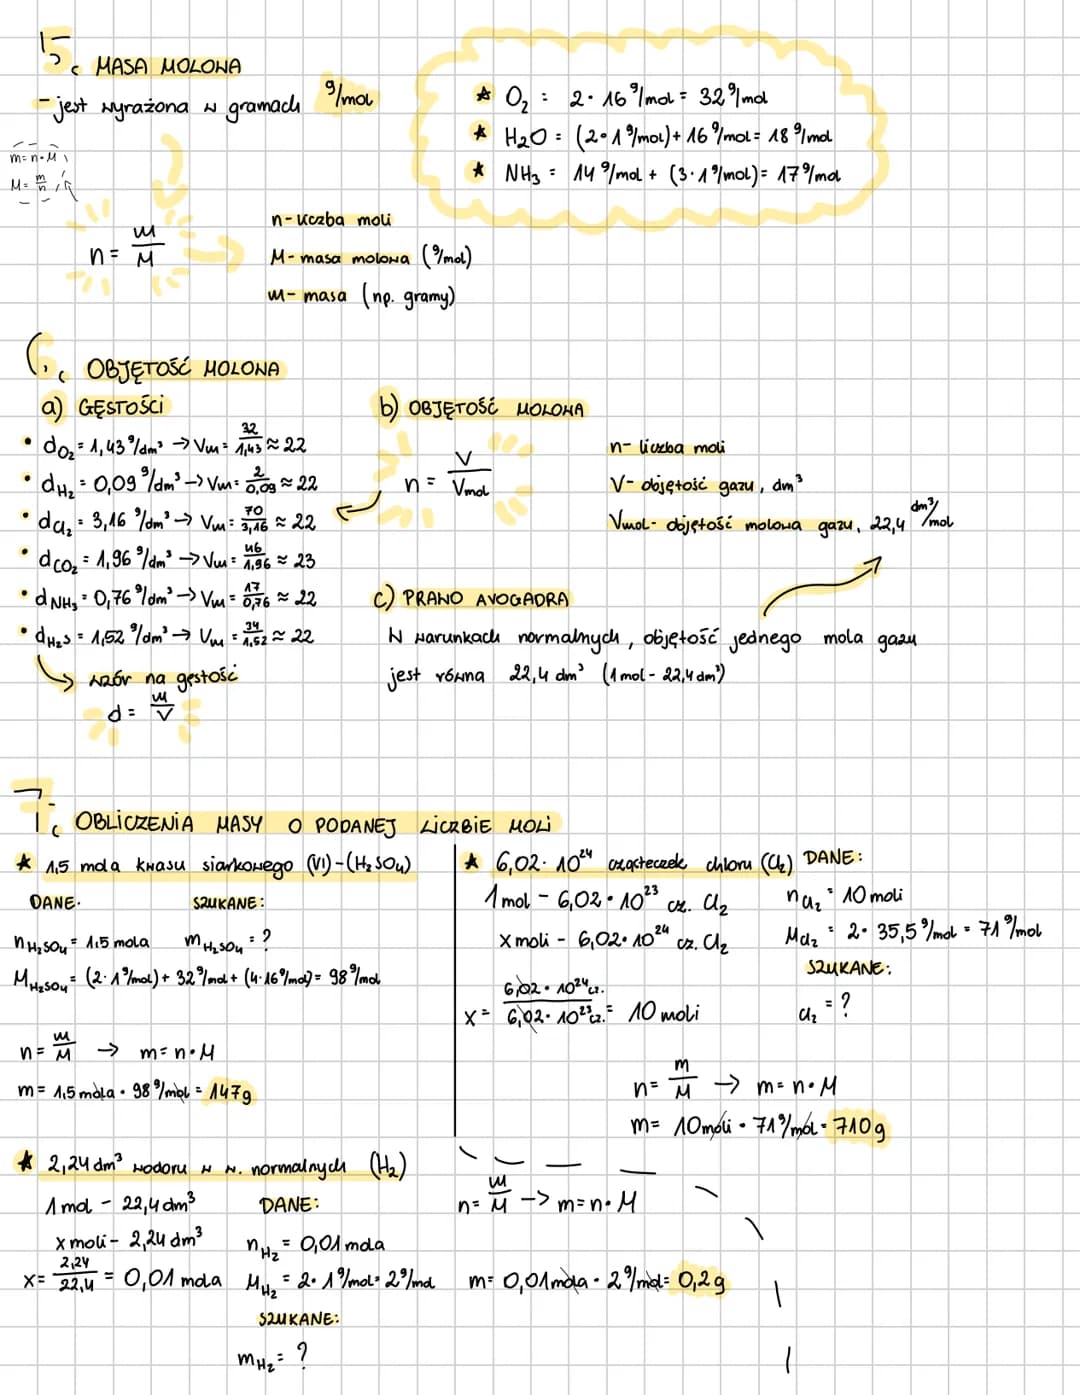 5. MASA MOLOWA
- jest wyrażona w gramach g/mol
m=n·M
M= m/n
n= m/M
n- liczba moli
M- masa molowa (g/mol)
m- masa (np. gramy)
★ O₂ : 2· 16 g/mol = 32 g/mol
★ H₂O = (2·1 g/mol)+ 16 g/mol= 18 g/mol
★ NH₃ = 14 g/mol + (3·1 g/mol)= 17 g/mol
6. OBJĘTOŚĆ MOLOWA
a) GĘSTOŚCI
• dO₂= 1,43 g/dm³ → Vm= 32/1,43 ≈ 22
• dH₂= 0,09 g/dm³ → Vm= 2/0,09 ≈ 22
• dCl₂= 3,16 g/dm³ → Vm= 70/3,16 ≈ 22
• dCO₂= 1,96 g/dm³ → Vm= 46/1,96 ≈ 23
• dNH₃= 0,76 g/dm³ → Vm= 17/0,76 ≈ 22
• dH₂S= 1,52 g/dm³ → Vm= 34/1,52 ≈ 22
wzór na gęstość
d= m/V
b) OBJĘTOŚĆ MOLOWA
n= V/Vmol
n- liczba moli
V- objętość gazu, dm³
Vmol- objętość molowa gazu, 22,4 dm³/mol
c) PRAWO AVOGADRA
W warunkach normalnych, objętość jednego mola gazu
jest równa 22,4 dm³ (1 mol - 22,4 dm³)
7. OBLICZENIA MASY O PODANEJ LICZBIE MOLI
★ 1,5 mola kwasu siarkowego (VI)-(H₂SO₄)
DANE: SZUKANE:
nH₂SO₄= 1,5 mola mH₂SO₄= ?
MH₂SO₄= (2·1 g/mol)+ 32 g/mol+ (4·16 g/mol)= 98 g/mol
n= m/M → m= n·M
m= 1,5 mola · 98 g/mol = 147g
★ 6,02· 10²⁴ cząsteczek chloru (Cl₂) DANE:
1 mol - 6,02· 10²³ cz. Cl₂ nCl₂= 10 moli
x moli - 6,02· 10²⁴ cz. Cl₂ MCl₂= 2· 35,5 g/mol = 71 g/mol
SZUKANE:
x= 6,02· 10²⁴cz./6,02· 10²³cz.= 10 moli Cl₂ = ?
n= m/M → m= n·M
m= 10 moli · 71 g/mol= 710g
★ 2,24 dm³ wodoru w w. normalnych (H₂)
1 mol - 22,4 dm³ DANE:
x moli- 2,24 dm³ nH₂= 0,01 mola
x= 2,24/22,4 = 0,01 mola MH₂= 2· 1 g/mol= 2 g/mol
SZUKANE:
mH₂= ?
n= m/M -> m= n·M
m= 0,01 mola · 2 g/mol= 0,2g